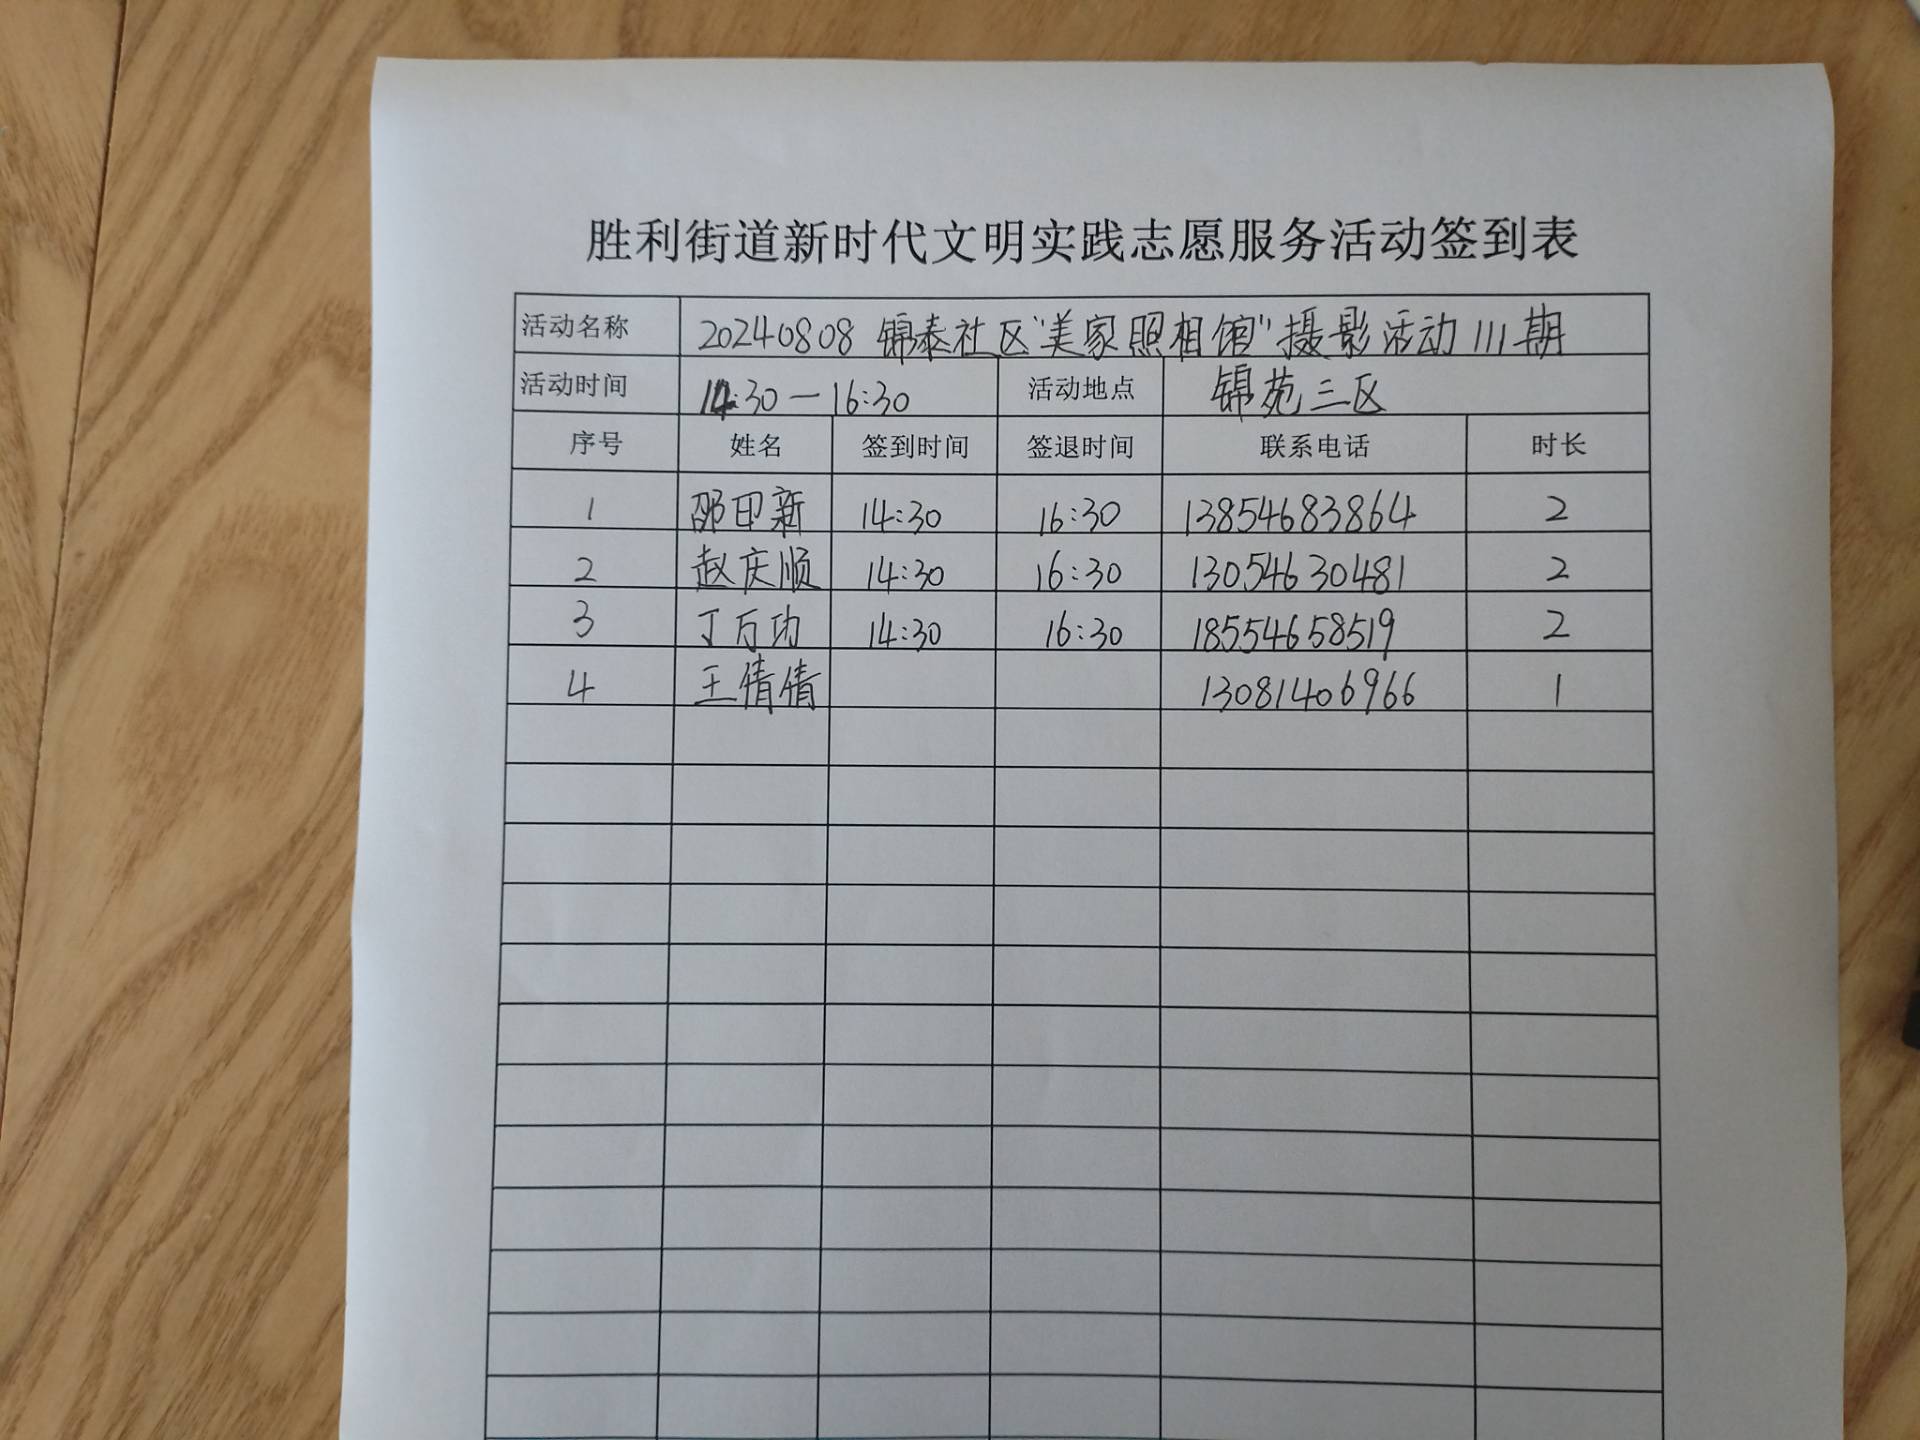 胜利街道新时代文明实践志愿服务活动签到表
活动名称 20240808 锦泰社区"美家照相馆"摄影活动111期
活动时间 14:30—16:30 活动地点 锦苑三区
序号 姓名 签到时间 签退时间 联系电话 时长
1 邵田新 14:30 16:30 13854683864 2
2 赵庆顺 14:30 16:30 13054630481 2
3 丁万功 14:30 16:30 18554658519 2
4 王倩倩 13081406966 1